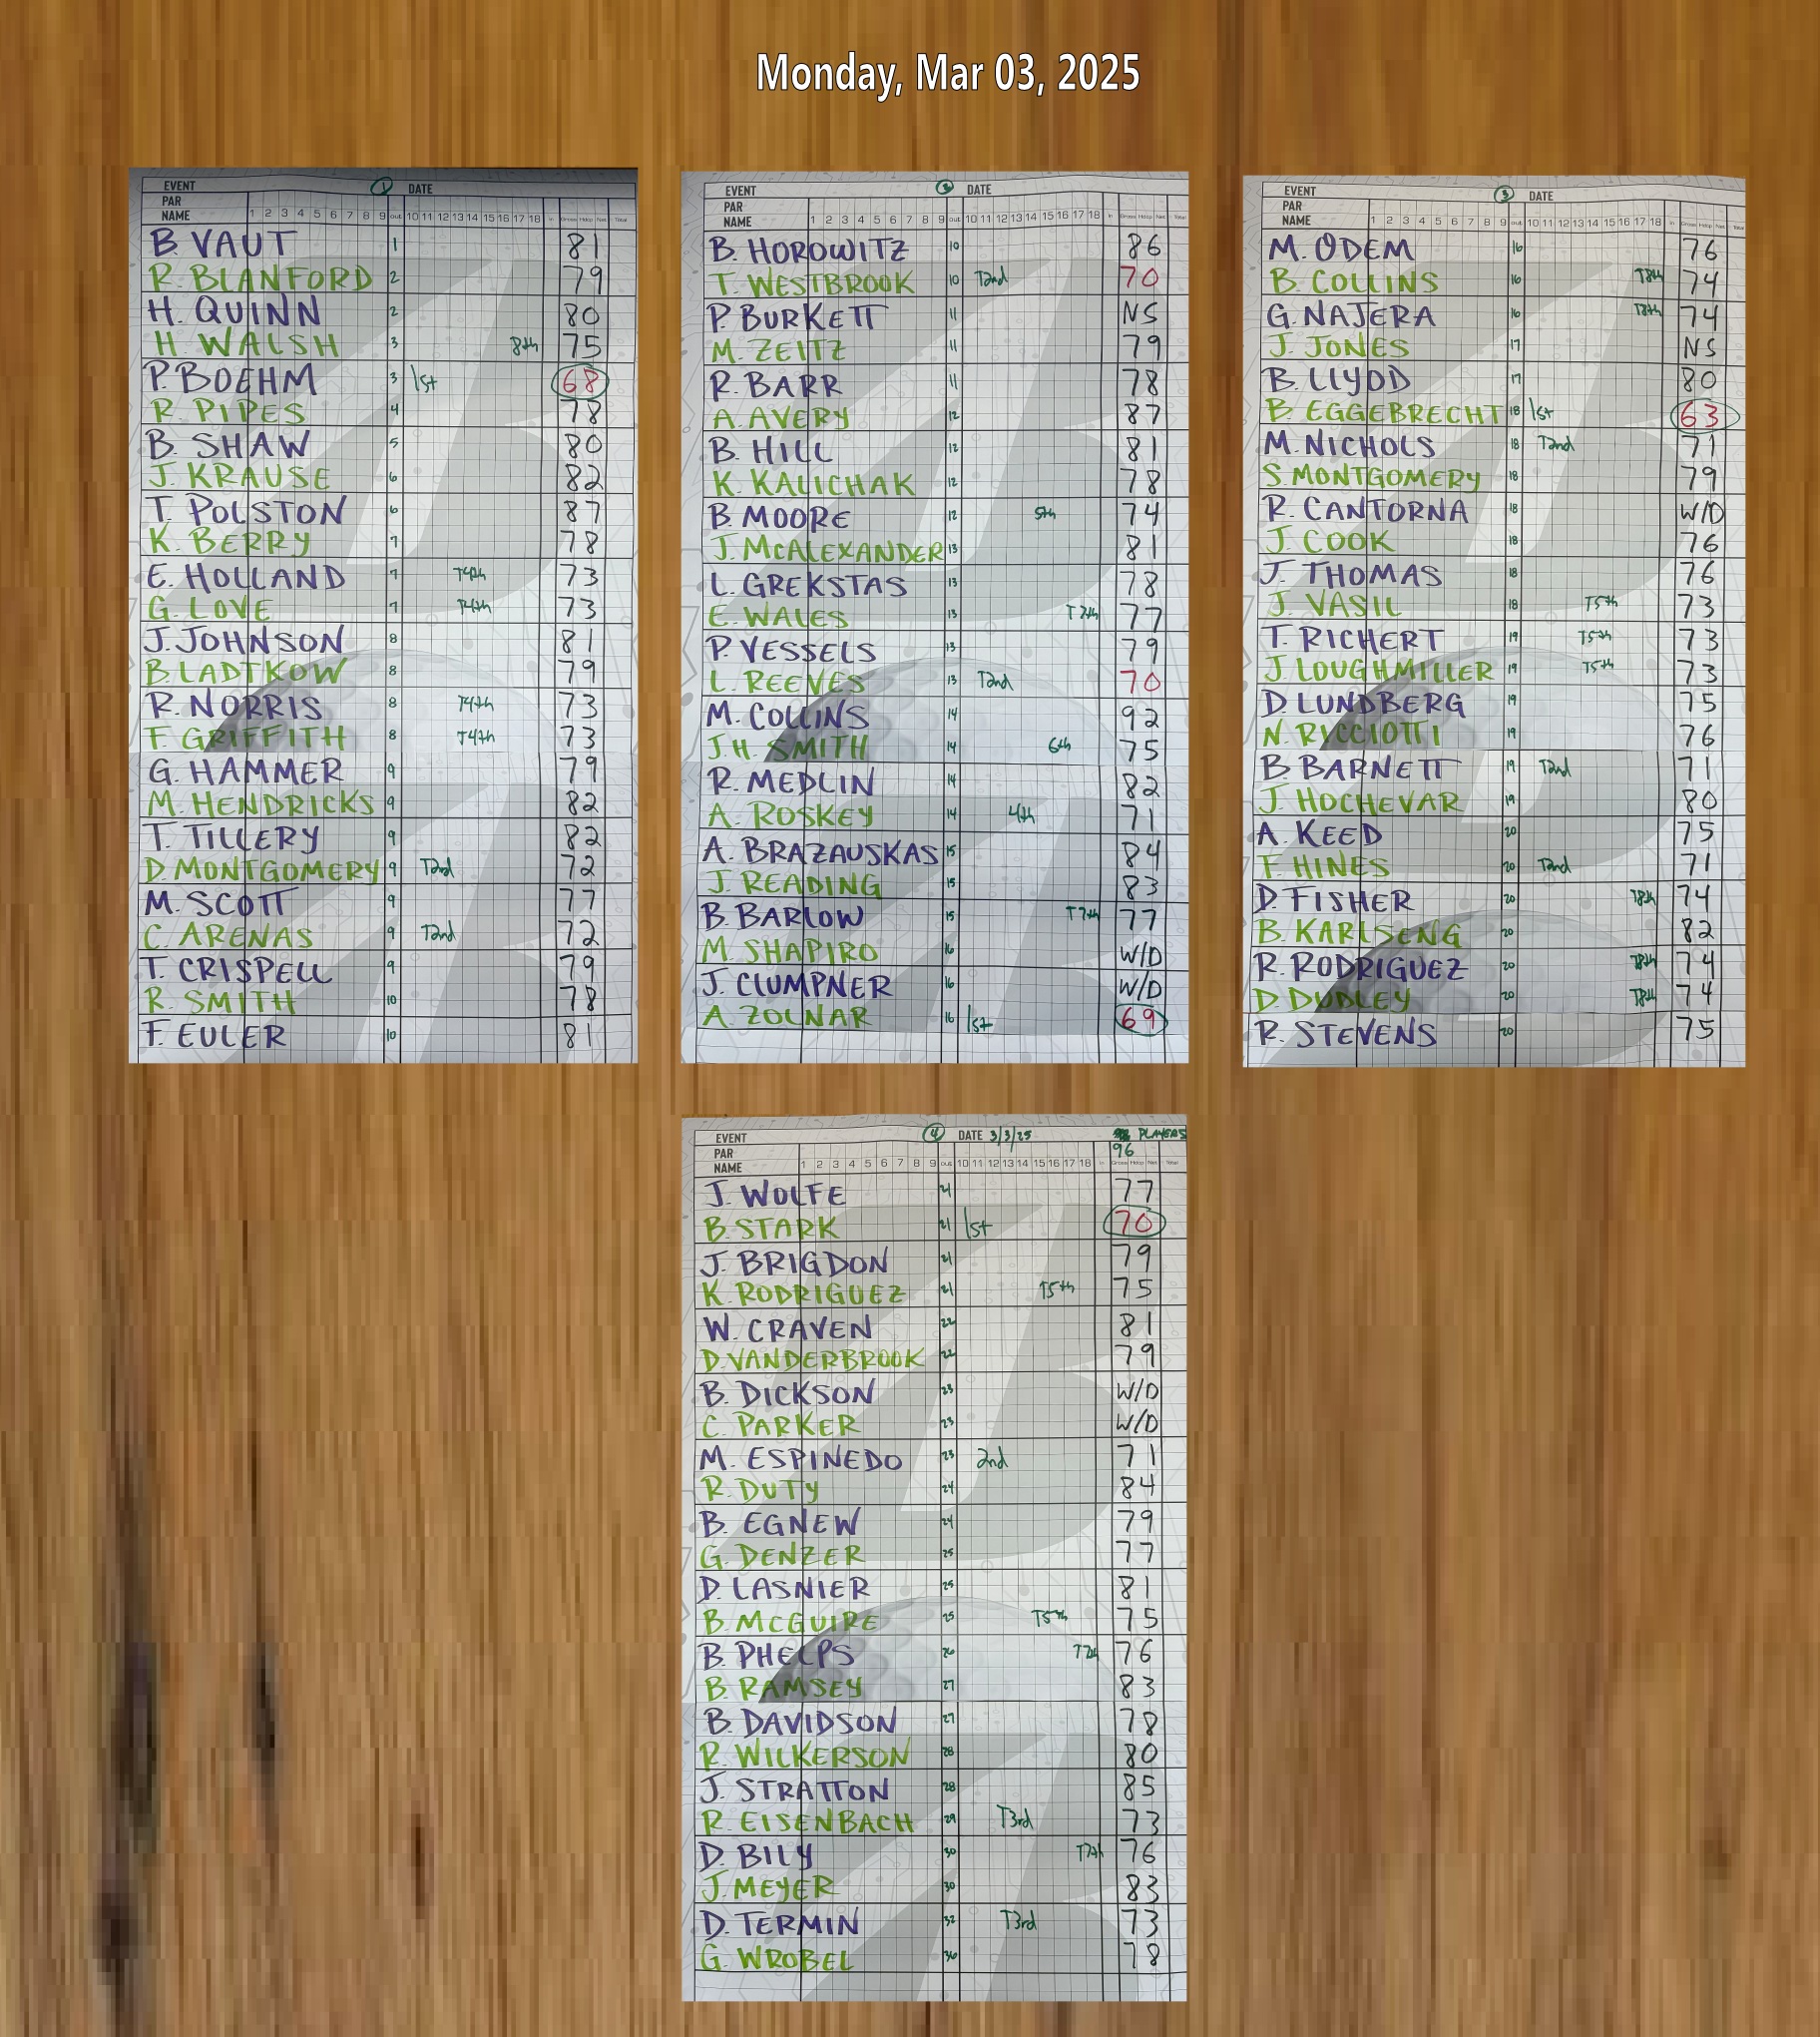 Monday, Mar 03, 2025
EVENT ① DATE
PAR
NAME 1 2 3 4 5 6 7 8 9 out 10 11 12 13 14 15 16 17 18 in Gross Hdcp Net Total
B. VAUT 1 81
R. BLANFORD 2 79
H. QUINN 2 80
H. WALSH 3 8th 75
P. BOEHM 3 1st 68
R. PIPES 4 78
B. SHAW 5 80
J. KRAUSE 6 82
T. POLSTON 6 87
K. BERRY 7 78
E. HOLLAND 7 T4th 73
G. LOVE 7 T4th 73
J. JOHNSON 8 81
B. LADTKOW 8 79
R. NORRIS 8 T4th 73
F. GRIFFITH 8 T4th 73
G. HAMMER 9 79
M. HENDRICKS 9 82
T. TILLERY 9 82
D. MONTGOMERY 9 T2nd 72
M. SCOTT 9 77
C. ARENAS 9 T2nd 72
T. CRISPELL 9 79
R. SMITH 10 78
F. EULER 10 81
EVENT ② DATE
PAR
NAME 1 2 3 4 5 6 7 8 9 out 10 11 12 13 14 15 16 17 18 in Gross Hdcp Net Total
B. HOROWITZ 10 86
T. WESTBROOK 10 T2nd 70
P. BURKETT 11 NS
M. ZEITZ 11 79
R. BARR 11 78
A. AVERY 12 87
B. HILL 12 81
K. KALICHAK 12 78
B. MOORE 12 5th 74
J. McALEXANDER 13 81
L. GREKSTAS 13 78
E. WALES 13 T7th 77
P. VESSELS 13 79
L. REEVES 13 T2nd 70
M. COLLINS 14 92
J.H. SMITH 14 6th 75
R. MEDLIN 14 82
A. ROSKEY 14 4th 71
A. BRAZAUSKAS 15 84
J. READING 15 83
B. BARLOW 15 T7th 77
M. SHAPIRO 16 W/D
J. CLUMPNER 16 W/D
A. ZOLNAR 16 1st 69
EVENT ③ DATE
PAR
NAME 1 2 3 4 5 6 7 8 9 out 10 11 12 13 14 15 16 17 18 in Gross Hdcp Net Total
M. ODEM 16 76
B. COLLINS 16 T8th 74
G. NAJERA 16 T8th 74
J. JONES 17 NS
B. LLYOD 17 80
B. EGGEBRECHT 18 1st 63
M. NICHOLS 18 T2nd 71
S. MONTGOMERY 18 79
R. CANTORNA 18 W/D
J. COOK 18 76
J. THOMAS 18 76
J. VASIL 18 T5th 73
T. RICHERT 19 T5th 73
J. LOUGHMILLER 19 T5th 73
D. LUNDBERG 19 75
N. RICCIOTTI 19 76
B. BARNETT 19 T2nd 71
J. HOCHEVAR 19 80
A. KEED 20 75
F. HINES 20 T2nd 71
D. FISHER 20 T8th 74
B. KARLSENG 20 82
R. RODRIGUEZ 20 T8th 74
D. DUDLEY 20 T8th 74
R. STEVENS 20 75
EVENT ④ DATE 3/3/25 PLAYERS
PAR 96
NAME 1 2 3 4 5 6 7 8 9 out 10 11 12 13 14 15 16 17 18 in Gross Hdcp Net Total
J. WOLFE 21 77
B. STARK 21 1st 70
J. BRIGDON 21 79
K. RODRIGUEZ 21 T5th 75
W. CRAVEN 22 81
D. VANDERBROOK 22 79
B. DICKSON 23 W/D
C. PARKER 23 W/D
M. ESPINEDO 23 2nd 71
R. DUTY 24 84
B. EGNEW 24 79
G. DENZER 25 77
D. LASNIER 25 81
B. McGUIRE 25 T5th 75
B. PHELPS 26 T7th 76
B. RAMSEY 27 83
B. DAVIDSON 27 78
R. WILKERSON 28 80
J. STRATTON 28 85
R. EISENBACH 29 T3rd 73
D. BILY 30 T7th 76
J. MEYER 30 83
D. TERMIN 32 T3rd 73
G. WROBEL 36 78